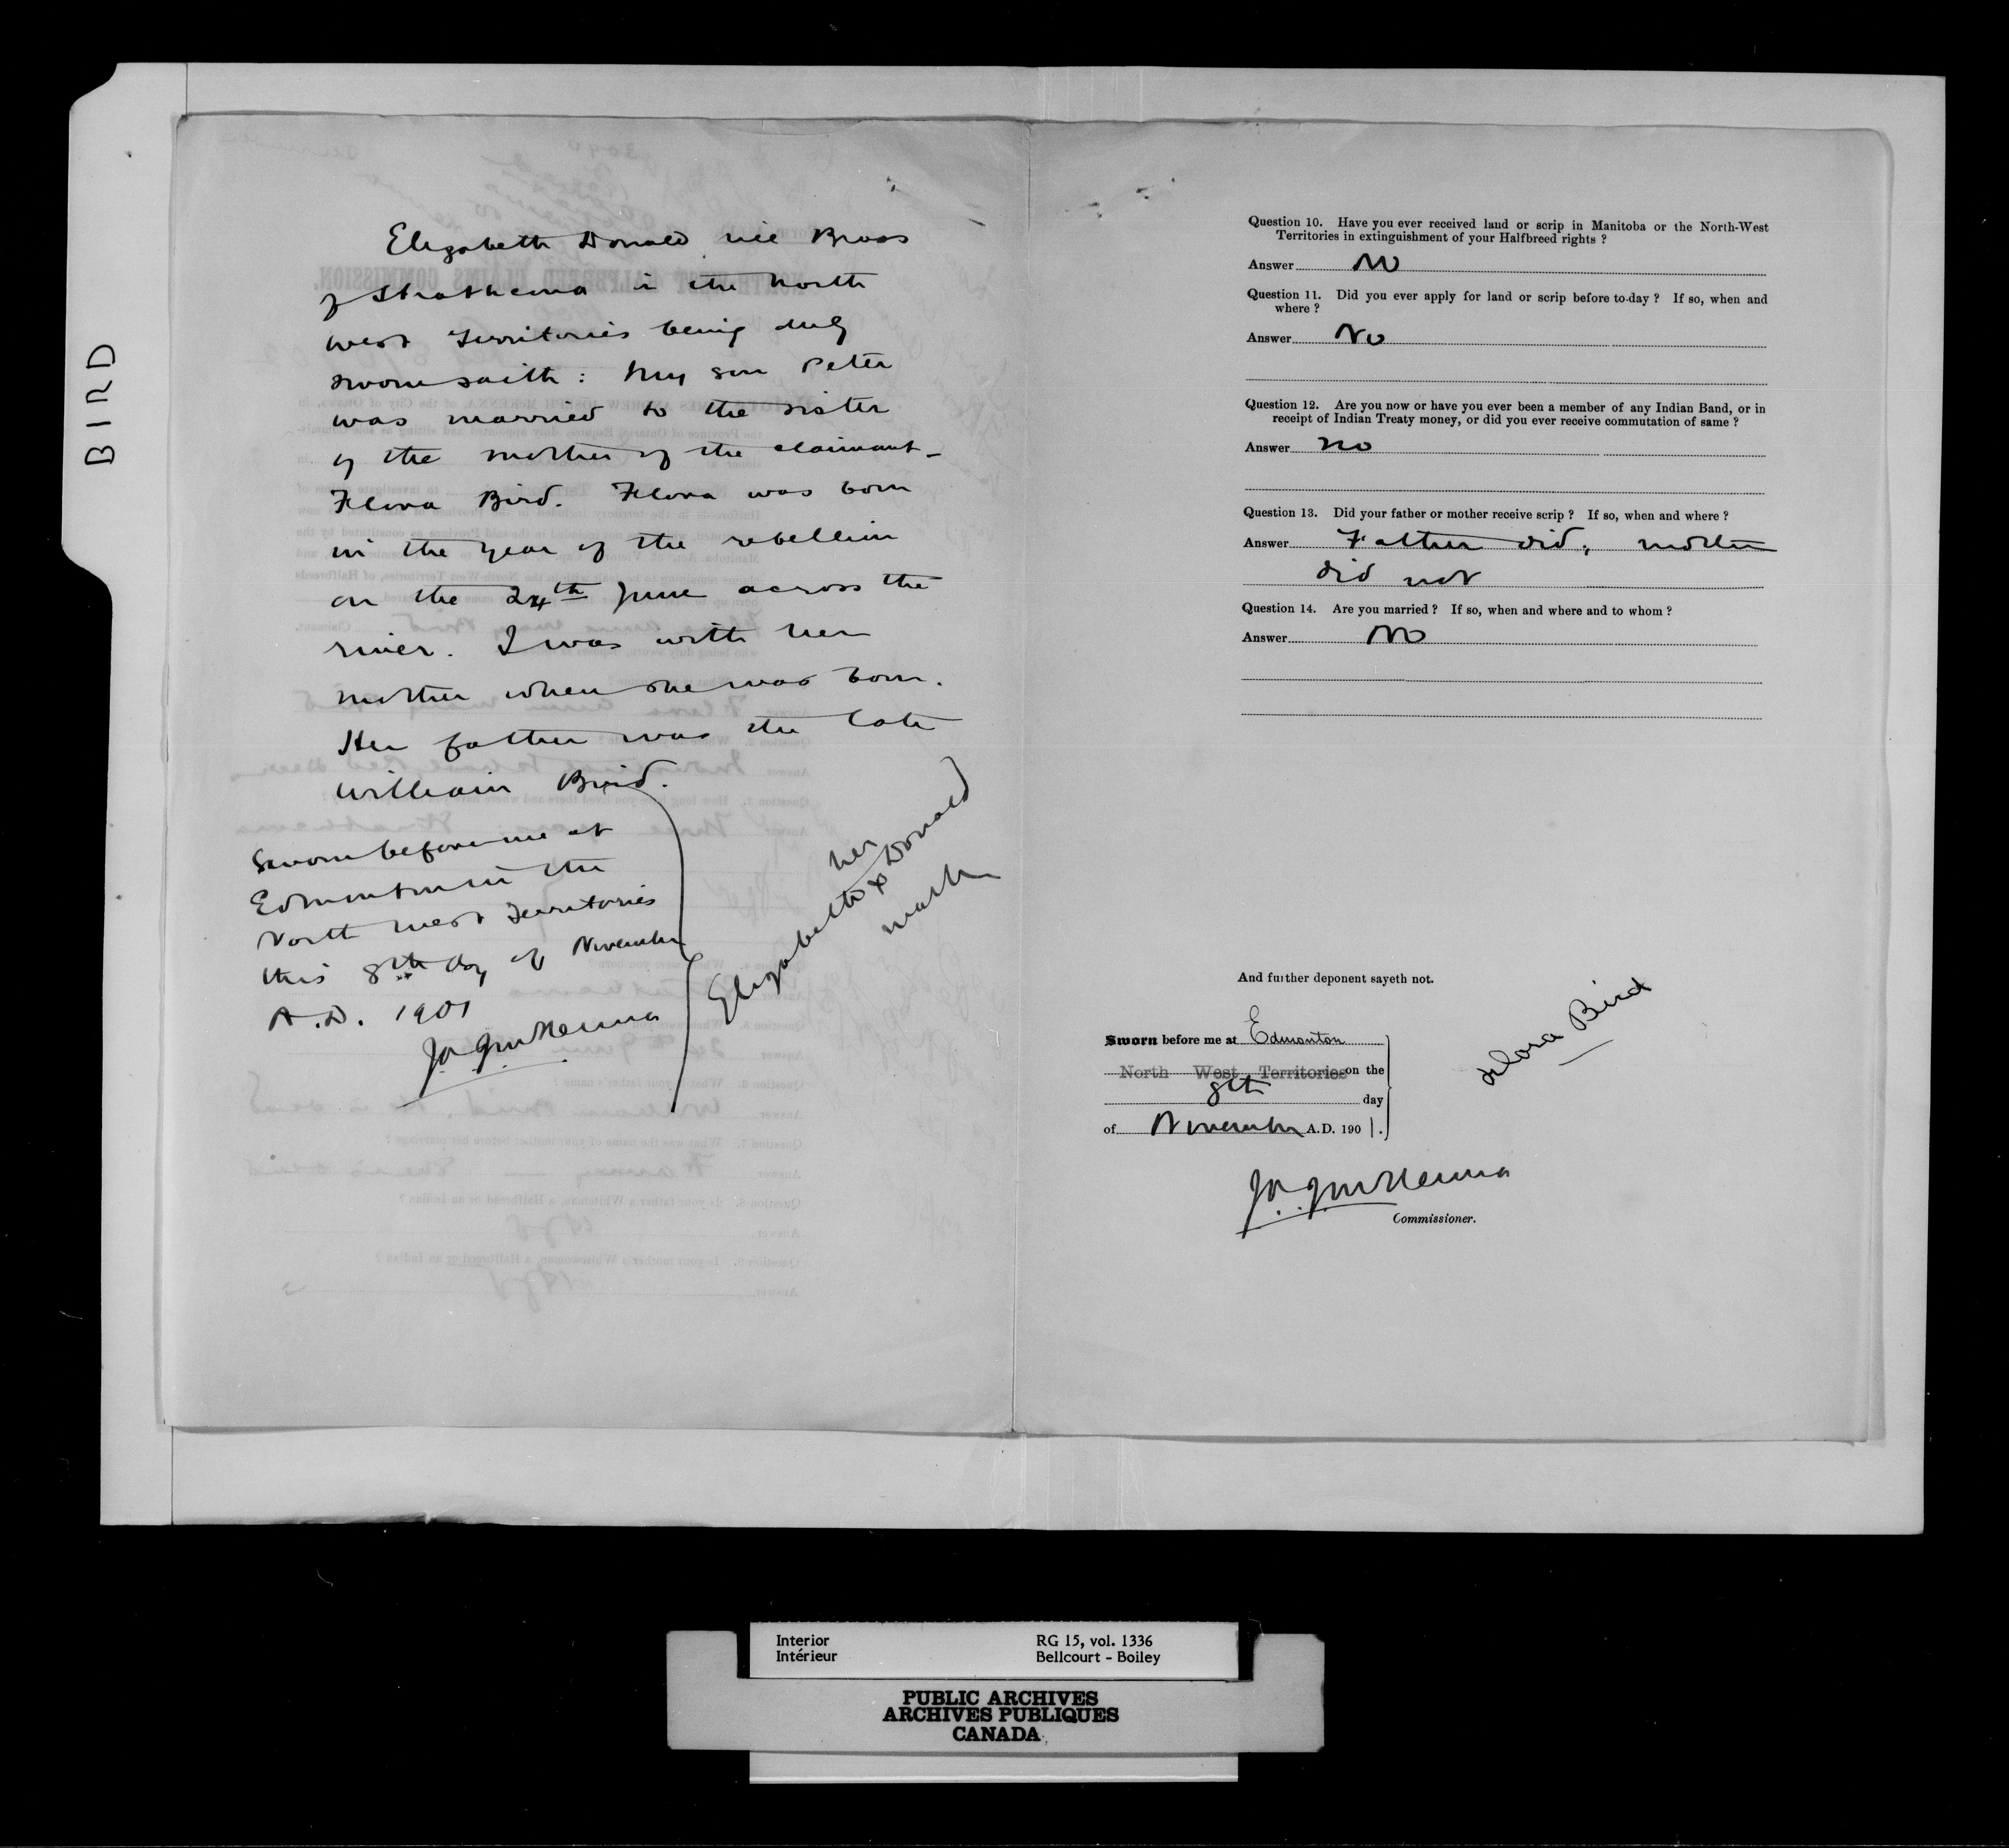 BIRD
Elizabeth Donald née Brass
of Strathcona in the North
West Territories being duly
sworn saith: My son Peter
was married to the sister
of the mother of the claimant
Flora Bird. Flora was born
in the year of the rebellion
on the 24th June across the
river. I was with her
mother when she was born.
Her father was the late
William Bird.
Sworn before me at
Edmonton in the
North West Territories
this 8th day of November
A.D. 1901
J.A.J. McKenna
her
Elizabeth x Donald
mark
Question 10. Have you ever received land or scrip in Manitoba or the North-West
Territories in extinguishment of your Halfbreed rights ?
Answer No
Question 11. Did you ever apply for land or scrip before to-day ? If so, when and
where ?
Answer No
Question 12. Are you now or have you ever been a member of any Indian Band, or in
receipt of Indian Treaty money, or did you ever receive commutation of same ?
Answer No
Question 13. Did your father or mother receive scrip ? If so, when and where ?
Answer Father did, mother
did not
Question 14. Are you married ? If so, when and where and to whom ?
Answer No
And further deponent sayeth not.
Sworn before me at Edmonton
North West Territories on the
8th day
of November A.D. 1901.
Flora Bird
J.A.J. McKenna
Commissioner.
Interior RG 15, vol. 1336
Intérieur Bellcourt - Boiley
PUBLIC ARCHIVES
ARCHIVES PUBLIQUES
CANADA